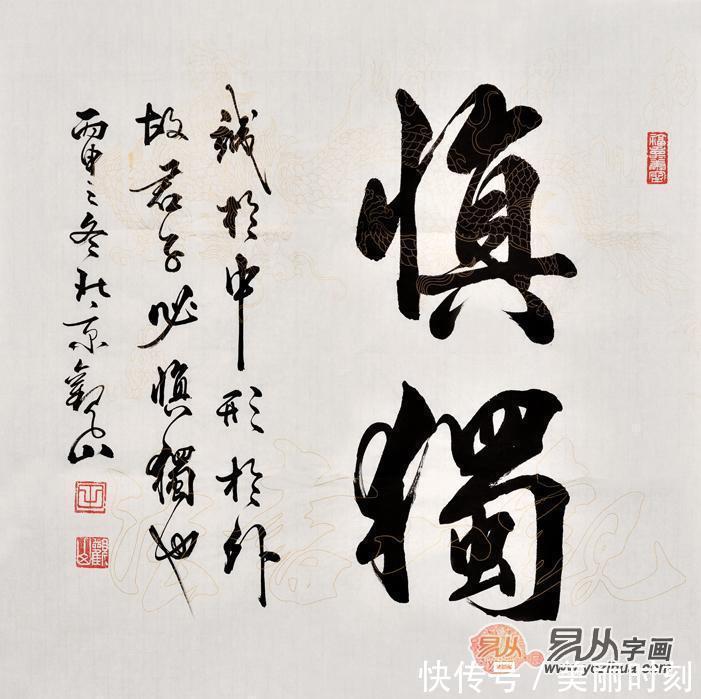 慎獨
誠於中形於外
故君子必慎獨也
丙申之冬北京觀山
易从字画
www.yczihua.com
快传号/美丽时刻